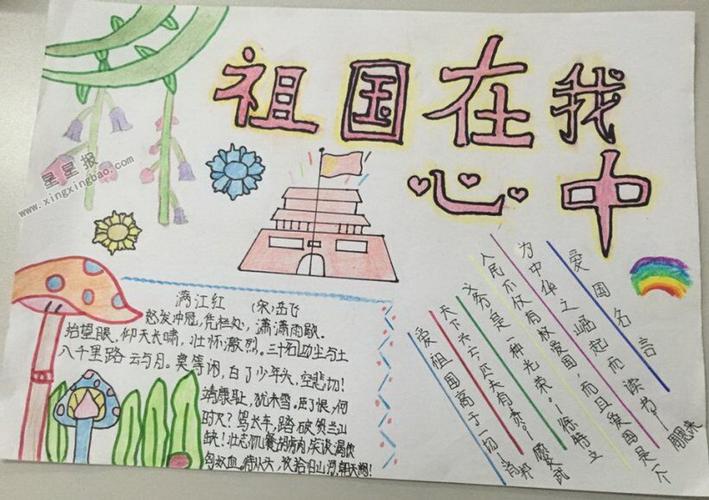 祖国在我
心中
星星报
www.xingxingbao.com
满江红 (宋)岳飞
怒发冲冠,凭栏处,潇潇雨歇.
抬望眼.仰天长啸,壮怀激烈.三十功名尘与土
八千里路云与月.莫等闲,白了少年头,空悲切!
靖康耻,犹未雪.臣子恨,何
时灭?驾长车,踏破贺兰山
缺!壮志饥餐胡虏肉,笑谈渴饮
匈奴血.待从头,收拾旧山河,朝天阙!
爱国名言
为中华之崛起而读书!—周恩来
人民不仅有权爱国,而且爱国是个
义务,是一种光荣.—徐特立
天下兴亡,匹夫有责.—顾炎武
爱祖国高于一切!—肖邦